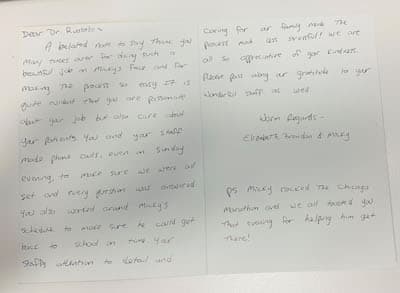 Dear Dr. Russo,
A belated note to say Thank you
Many times over for doing such a
beautiful job on Macky's Face and for
making The process so easy. It is
quite evident that you are passionate
about your job but also care about
your patients. You and your staff
made phone calls, even on Sunday
evening, to make sure we were all
set and every question was answered
You also worked around Macky's
schedule to make sure he could get
back to school on time. Your
Staff's attention to detail and
Caring for our family made The
process much less stressful! We are
all so appreciative of your kindness.
Please pass along our gratitude to your
Wonderful staff as well.
Warm Regards -
Elizabeth, Brandon & Macky
PS Macky rocked The Chicago
Marathon and we all toasted you
That evening for helping him get
There!